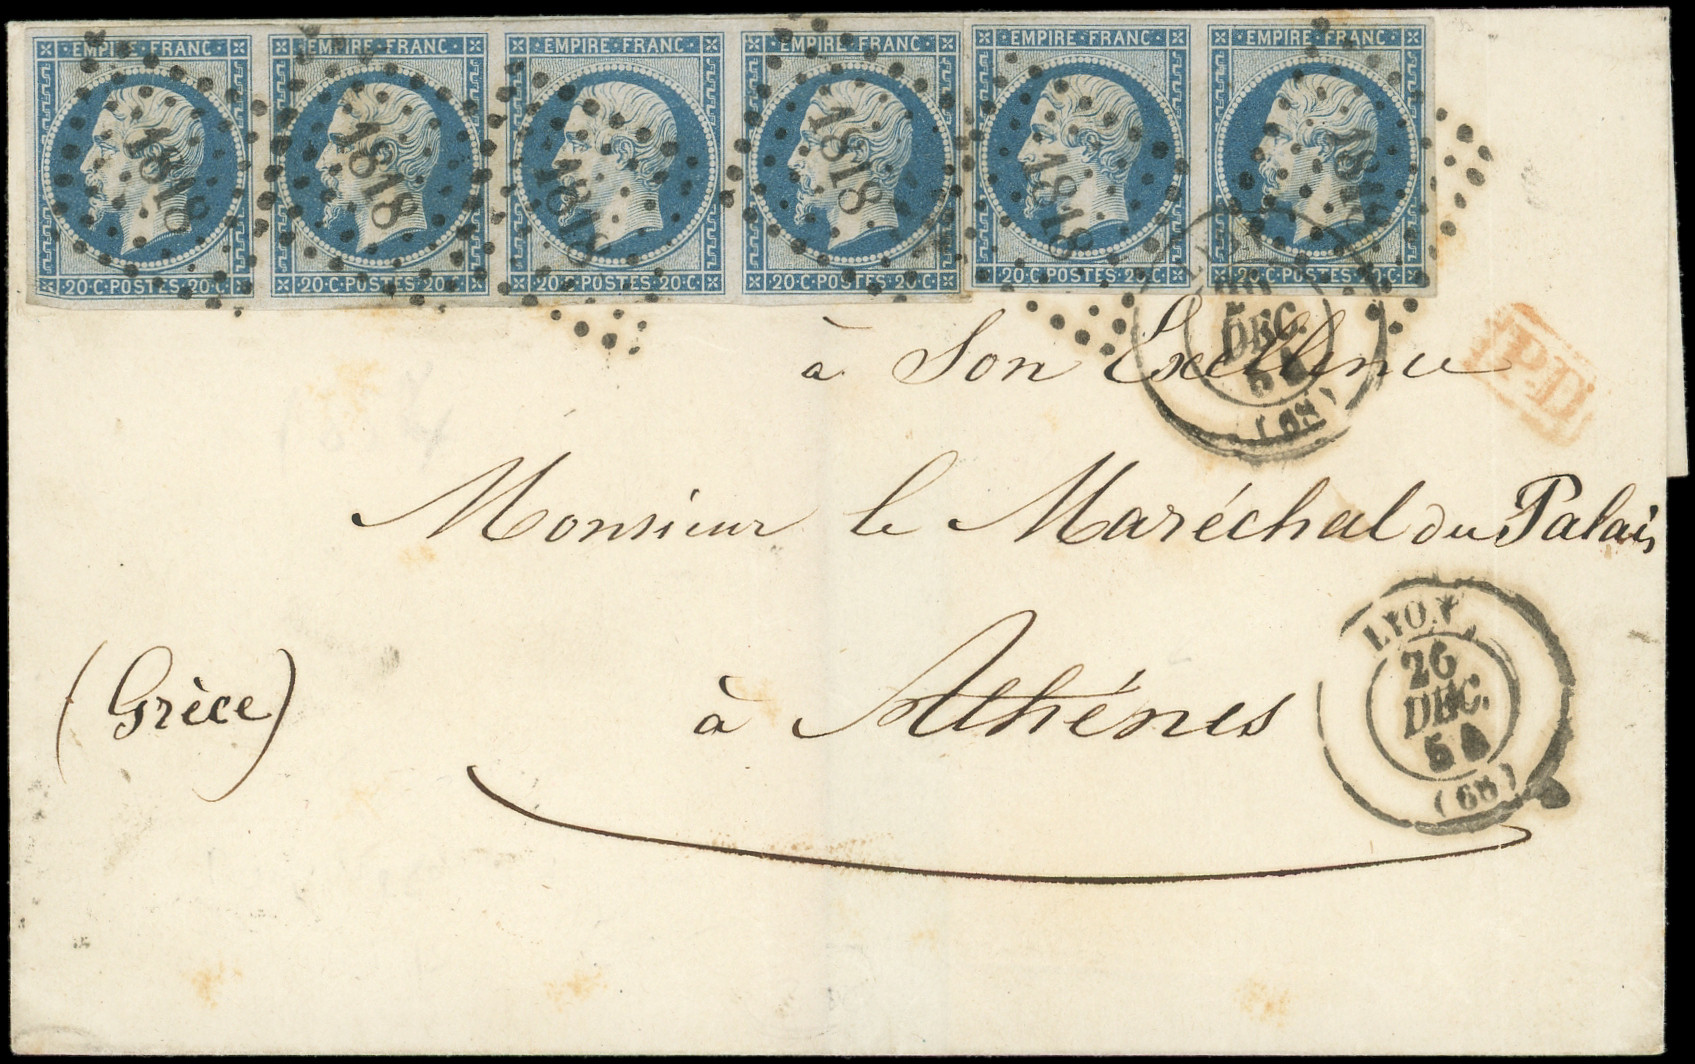 EMPIRE·FRANC EMPIRE·FRANC EMPIRE·FRANC EMPIRE·FRANC EMPIRE·FRANC EMPIRE·FRANC
1818 1818 1818 1818 1818 1818
20·C·POSTES·20·C· 20·C·POSTES·20 20·C·POSTES·20·C· 20·C·POSTES·20·C· 20·C·POSTES·20·C· 20·C·POSTES·20·C·
26
DEC.
(68)
P.D.
à Son Exellence
Monsieur le Maréchal du Palais
(Grèce)
à Athénes
LYON
26
DEC.
54
(68)